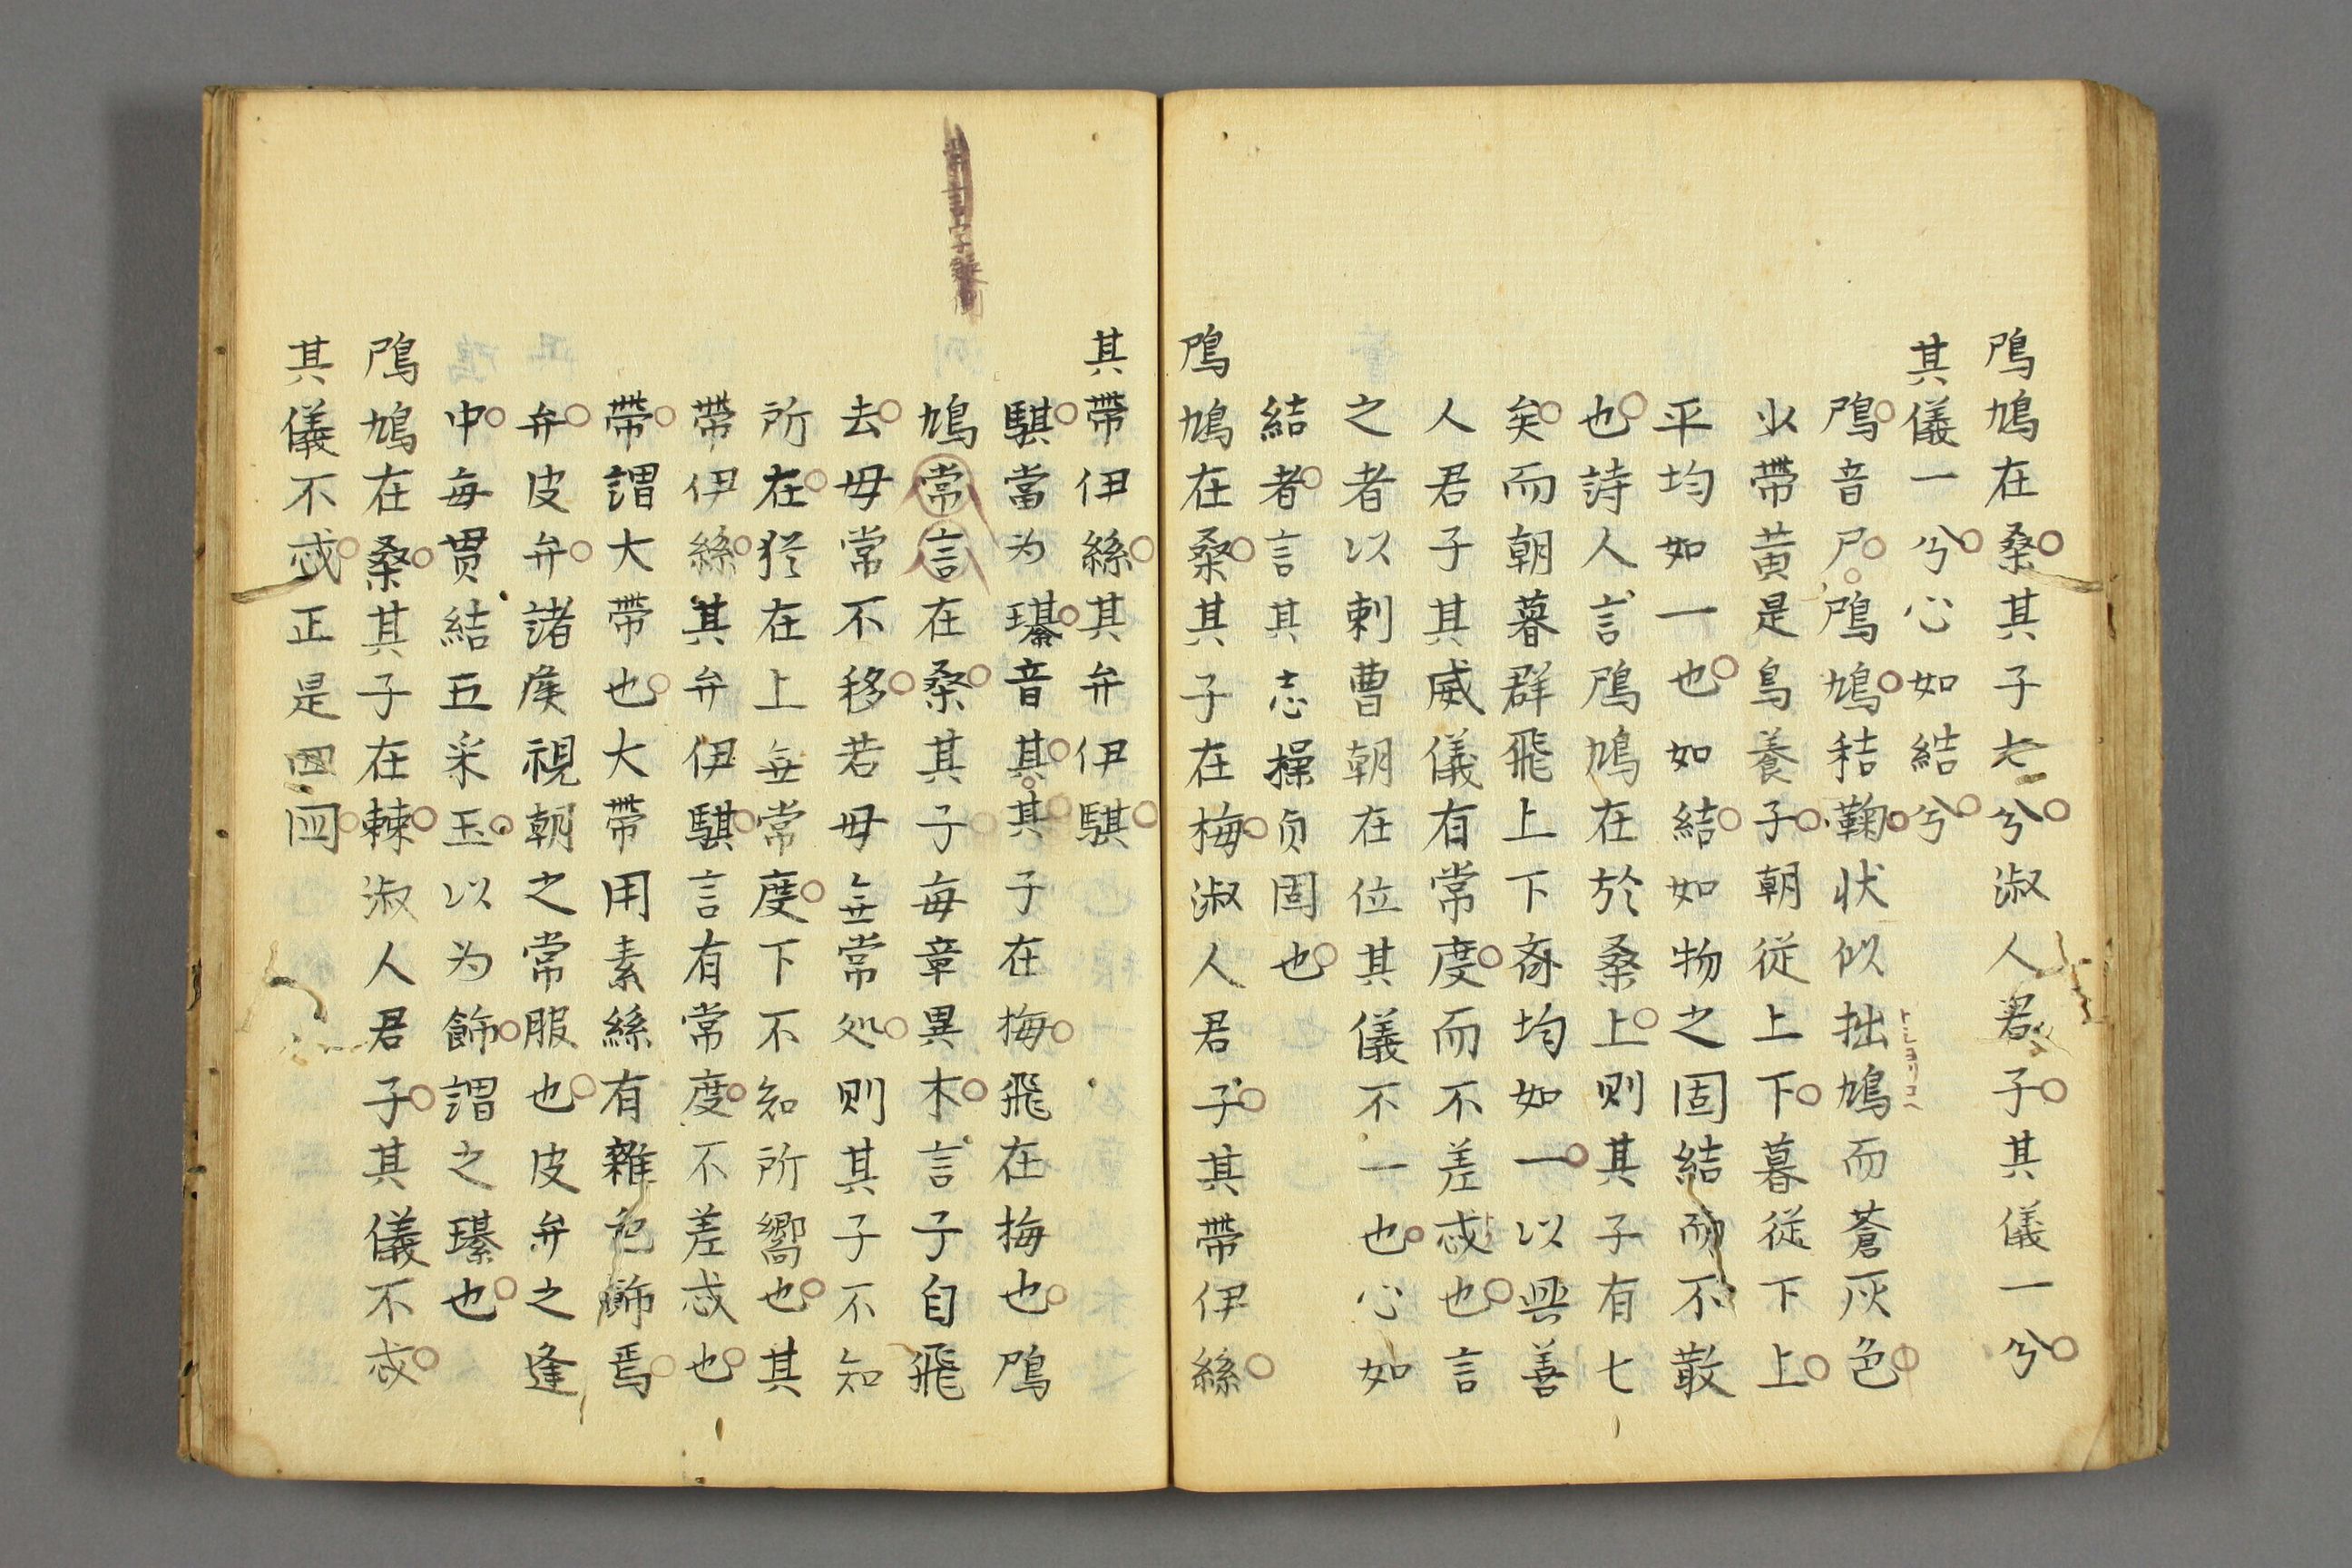 鳲鳩在桑其子七兮淑人君子其儀一兮
其儀一兮心如結兮
鳲音尸鳲鳩秸鞠状似拙鳩而蒼灰色
トシヨリコヘ
少帶黃是鳥養子朝従上下暮従下上
平均如一也如結如物之固結而不散
也詩人言鳲鳩在於桑上则其子有七
矣而朝暮群飛上下斉均如一以興善
人君子其威儀有常度而不差忒也言
之者以刺曹朝在位其儀不一也心如
結者言其志操貞固也
鳲鳩在桑其子在梅淑人君子其帶伊絲
其帶伊絲其弁伊騏
騏當为璂音其其子在梅飛在梅也鳲
鳩常言在桑其子每章異木言子自飛
去母常不移若母無常処则其子不知
所在犹在上無常度下不知所嚮也其
帶伊絲其弁伊騏言有常度不差忒也
帶謂大帶也大帶用素絲有雜色飾焉
弁皮弁諸侯視朝之常服也皮弁之逢
中每贯結五采玉以为飾謂之璂也
鳲鳩在桑其子在棘淑人君子其儀不忒
其儀不忒正是四國